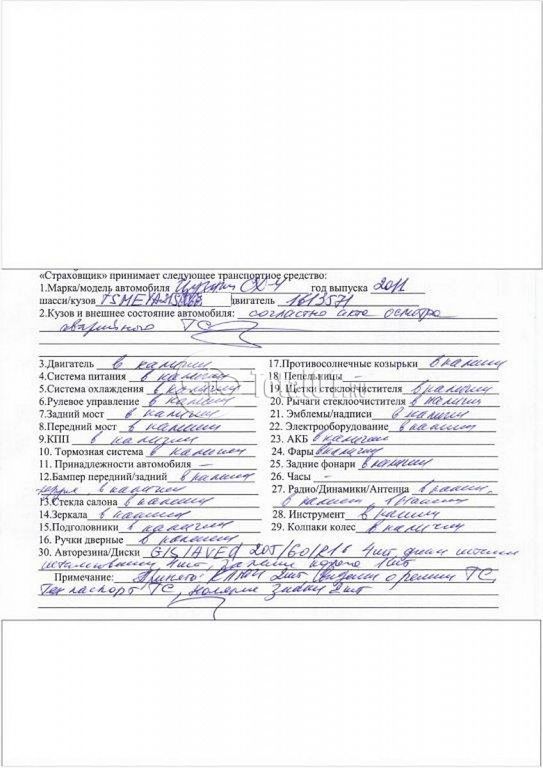 «Страховщик» принимает следующее транспортное средство:
1.Марка/модель автомобиля Сузуки SX-4 год выпуска 2011
шасси/кузов двигатель 1613571
2.Кузов и внешнее состояние автомобиля: согласно акта осмотра
аварийного ТС
3.Двигатель в наличии 17.Противосолнечные козырьки в наличии
4.Система питания в наличии 18 Пепельницы —
5.Система охлаждения в наличии 19. Щетки стеклоочистителя в наличии
6.Рулевое управление в наличии 20. Рычаги стеклоочистителя в наличии
7.Задний мост в наличии 21. Эмблемы/надписи в наличии
8.Передний мост в наличии 22. Электрооборудование в наличии
9.КПП в наличии 23. АКБ в наличии
10. Тормозная система в наличии 24. Фары в наличии
11. Принадлежности автомобиля — 25. Задние фонари в наличии
12.Бампер передний/задний в наличии 26. Часы —
в наличии 27. Радио/Динамики/Антенна в наличии,
13.Стекла салона в наличии в наличии,
14.Зеркала в наличии 28. Инструмент в наличии
15.Подголовники в наличии 29. Колпаки колес в наличии
16. Ручки дверные в наличии
30. Авторезина/Диски 205/60/R16 4шт, диски
1шт, 1шт
Примечание: Принято: ключи 2шт, ТС,
Тех паспорт ТС, номерные знаки 2шт